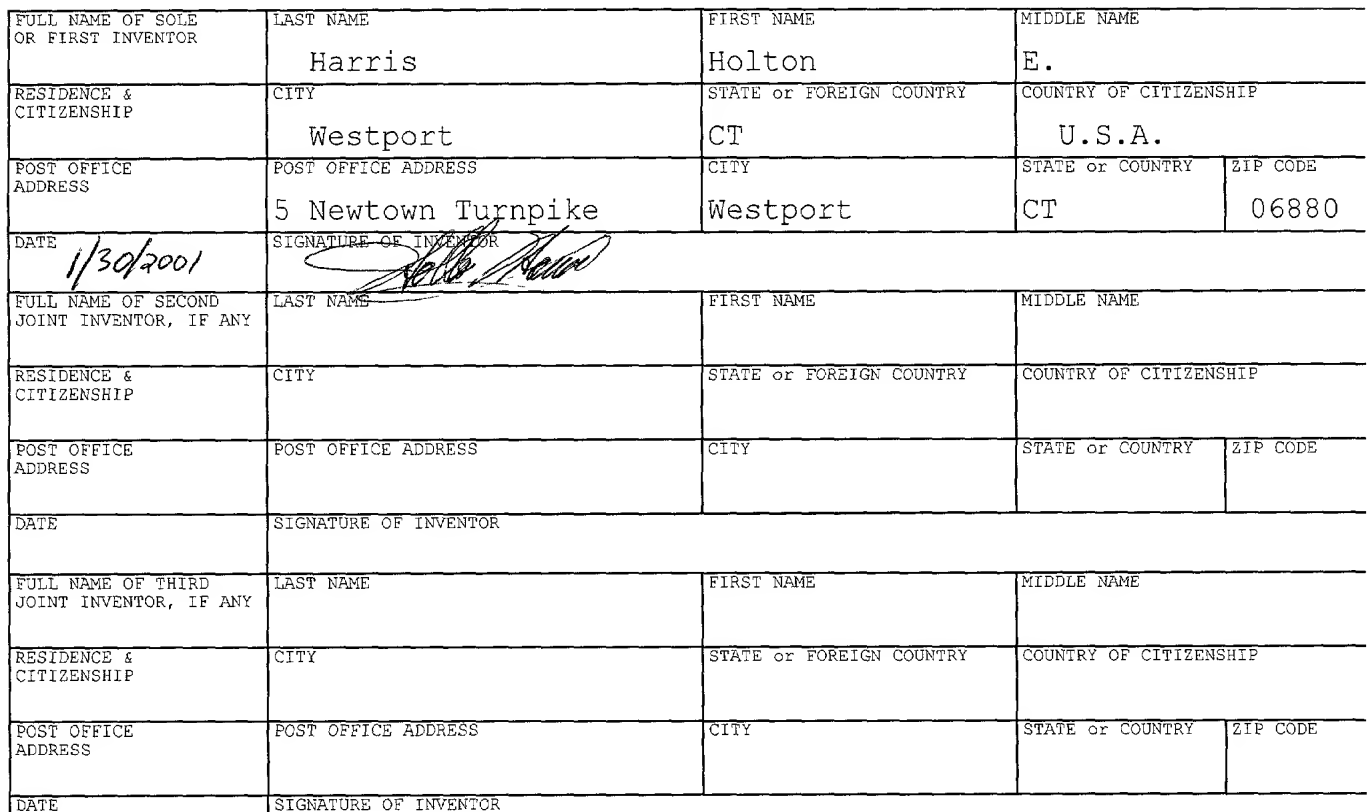 FULL NAME OF SOLE OR FIRST INVENTOR
LAST NAME
Harris
FIRST NAME
Holton
MIDDLE NAME
E.
RESIDENCE & CITIZENSHIP
CITY
Westport
STATE or FOREIGN COUNTRY
CT
COUNTRY OF CITIZENSHIP
U.S.A.
POST OFFICE ADDRESS
POST OFFICE ADDRESS
5 Newtown Turnpike
CITY
Westport
STATE or COUNTRY
CT
ZIP CODE
06880
DATE
1/30/2001
SIGNATURE OF INVENTOR
FULL NAME OF SECOND JOINT INVENTOR, IF ANY
LAST NAME
FIRST NAME
MIDDLE NAME
RESIDENCE & CITIZENSHIP
CITY
STATE or FOREIGN COUNTRY
COUNTRY OF CITIZENSHIP
POST OFFICE ADDRESS
POST OFFICE ADDRESS
CITY
STATE or COUNTRY
ZIP CODE
DATE
SIGNATURE OF INVENTOR
FULL NAME OF THIRD JOINT INVENTOR, IF ANY
LAST NAME
FIRST NAME
MIDDLE NAME
RESIDENCE & CITIZENSHIP
CITY
STATE or FOREIGN COUNTRY
COUNTRY OF CITIZENSHIP
POST OFFICE ADDRESS
POST OFFICE ADDRESS
CITY
STATE or COUNTRY
ZIP CODE
DATE
SIGNATURE OF INVENTOR